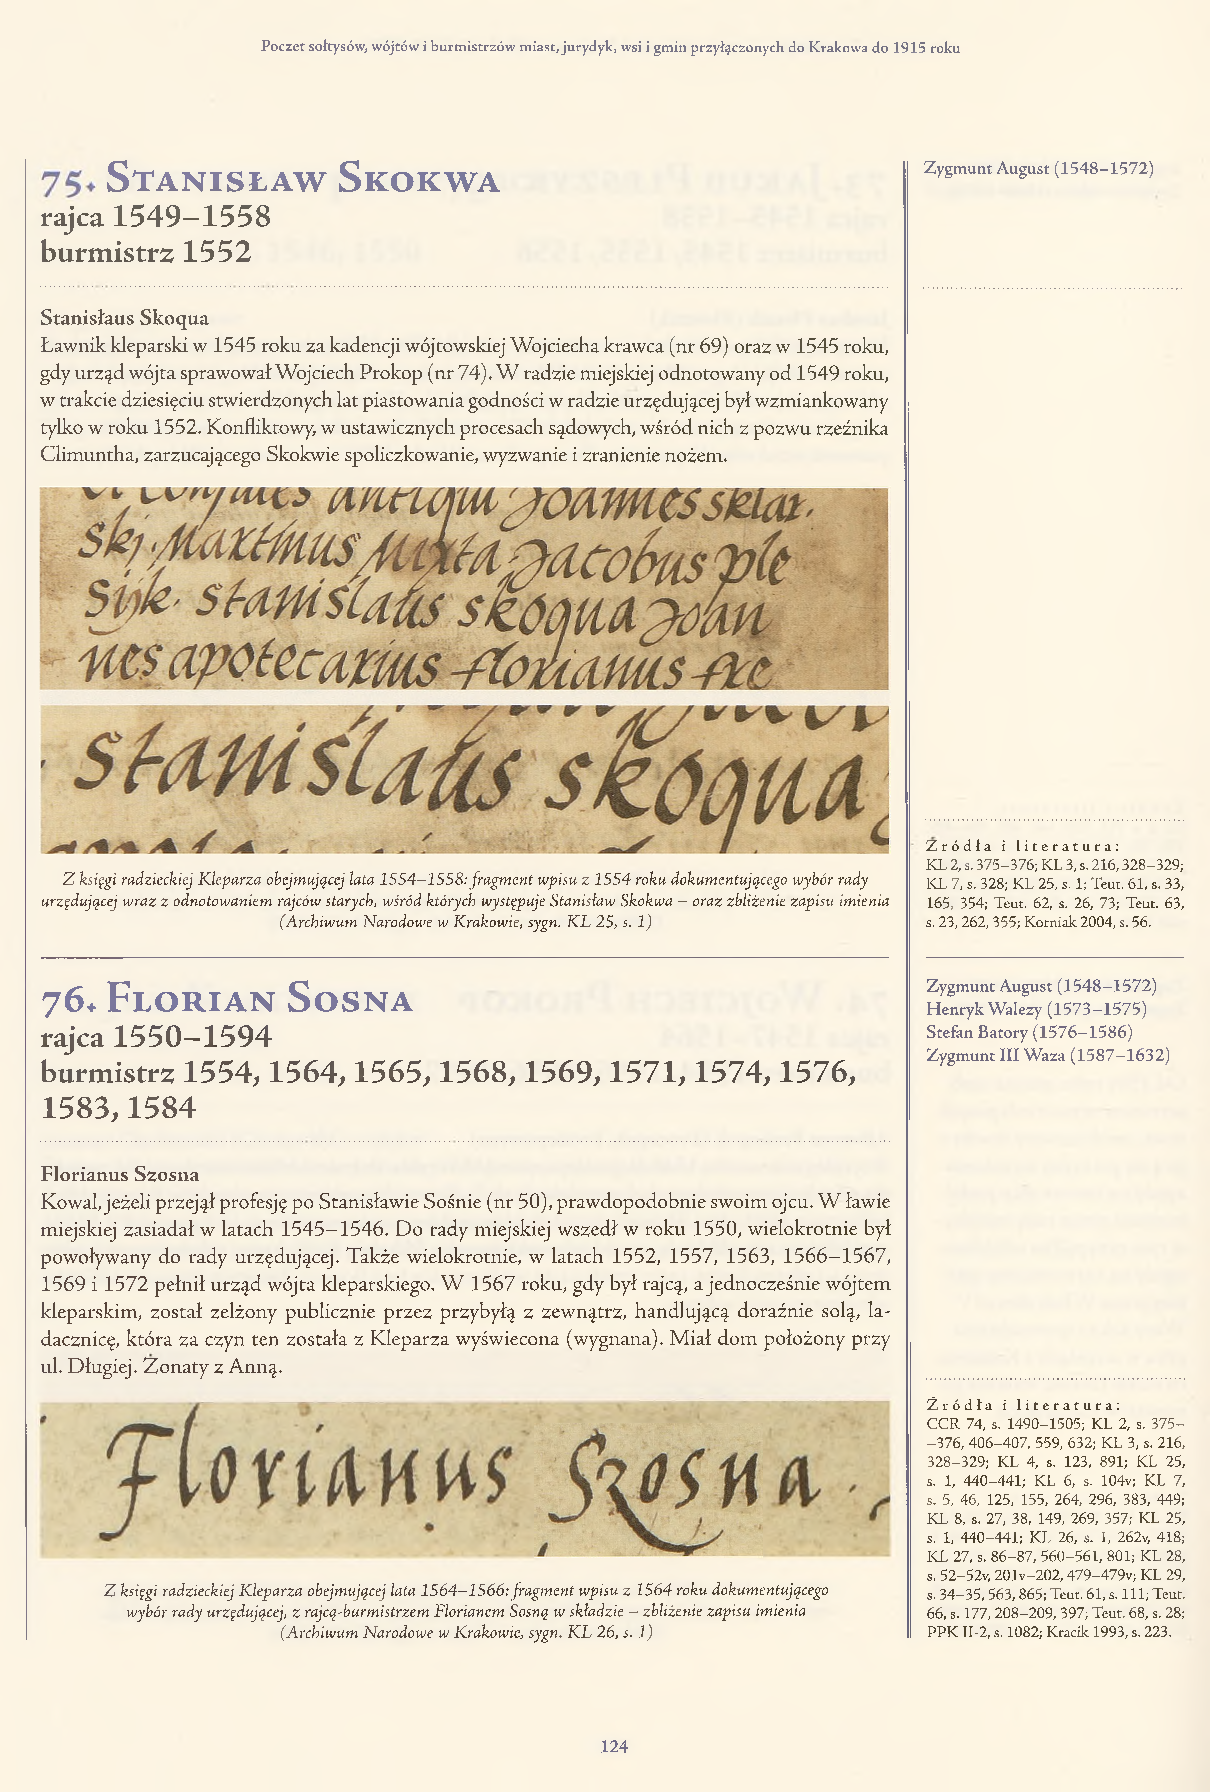 Poczet sołtysów, wójtów i burmistrzów miast, jurydyk, wsi i gmin przyłączonych do Krakowa do 1915 roku
75. Stanisław Skokwa
rajca 1549–1558
burmistrz 1552
Zygmunt August (1548–1572)
Stanisłaus Skoqua
Ławnik kleparski w 1545 roku za kadencji wójtowskiej Wojciecha krawca (nr 69) oraz w 1545 roku,
gdy urząd wójta sprawował Wojciech Prokop (nr 74). W radzie miejskiej odnotowany od 1549 roku,
w trakcie dziesięciu stwierdzonych lat piastowania godności w radzie urzędującej był wzmiankowany
tylko w roku 1552. Konfliktowy, w ustawicznych procesach sądowych, wśród nich z pozwu rzeźnika
Climuntha, zarzucającego Skokwie spoliczkowanie, wyzwanie i zranienie nożem.
et consules antiqui Joannes sklar.
skj. Martinus Mixta Jacobus ple
sijk. stanislaus skoqua Joan
nes apotecarius florianus fre
stanislaus skoqua
Z księgi radzieckiej Kleparza obejmującej lata 1554–1558: fragment wpisu z 1554 roku dokumentującego wybór rady
urzędującej wraz z odnotowaniem rajców starych, wśród których występuje Stanisław Skokwa – oraz zbliżenie zapisu imienia
(Archiwum Narodowe w Krakowie, sygn. KL 25, s. 1)
Źródła i literatura:
KL 2, s. 375–376; KL 3, s. 216, 328–329;
KL 7, s. 328; KL 25, s. 1; Teut. 61, s. 33,
165, 354; Teut. 62, s. 26, 73; Teut. 63,
s. 23, 262, 355; Korniak 2004, s. 56.
76. Florian Sosna
rajca 1550–1594
burmistrz 1554, 1564, 1565, 1568, 1569, 1571, 1574, 1576,
1583, 1584
Zygmunt August (1548–1572)
Henryk Walezy (1573–1575)
Stefan Batory (1576–1586)
Zygmunt III Waza (1587–1632)
Florianus Szosna
Kowal, jeżeli przejął profesję po Stanisławie Sośnie (nr 50), prawdopodobnie swoim ojcu. W ławie
miejskiej zasiadał w latach 1545–1546. Do rady miejskiej wszedł w roku 1550, wielokrotnie był
powoływany do rady urzędującej. Także wielokrotnie, w latach 1552, 1557, 1563, 1566–1567,
1569 i 1572 pełnił urząd wójta kleparskiego. W 1567 roku, gdy był rajcą, a jednocześnie wójtem
kleparskim, został zelżony publicznie przez przybyłą z zewnątrz, handlującą doraźnie solą, la-
dacznicę, która za czyn ten została z Kleparza wyświecona (wygnana). Miał dom położony przy
ul. Długiej. Żonaty z Anną.
Florianus Szosna
Z księgi radzieckiej Kleparza obejmującej lata 1564–1566: fragment wpisu z 1564 roku dokumentującego
wybór rady urzędującej, z rajcą-burmistrzem Florianem Sosną w składzie – zbliżenie zapisu imienia
(Archiwum Narodowe w Krakowie, sygn. KL 26, s. 1)
Źródła i literatura:
CCR 74, s. 1490–1505; KL 2, s. 375–
–376, 406–407, 559, 632; KL 3, s. 216,
328–329; KL 4, s. 123, 891; KL 25,
s. 1, 440–441; KL 6, s. 104v; KL 7,
s. 5, 46, 125, 155, 264, 296, 383, 449;
KL 8, s. 27, 38, 149, 269, 357; KL 25,
s. 1, 440–441; KL 26, s. 1, 262v, 418;
KL 27, s. 86–87, 560–561, 801; KL 28,
s. 52–52v, 201v–202, 479–479v; KL 29,
s. 34–35, 563, 865; Teut. 61, s. 111; Teut.
66, s. 177, 208–209, 397; Teut. 68, s. 28;
PPK II-2, s. 1082; Kracik 1993, s. 223.
124